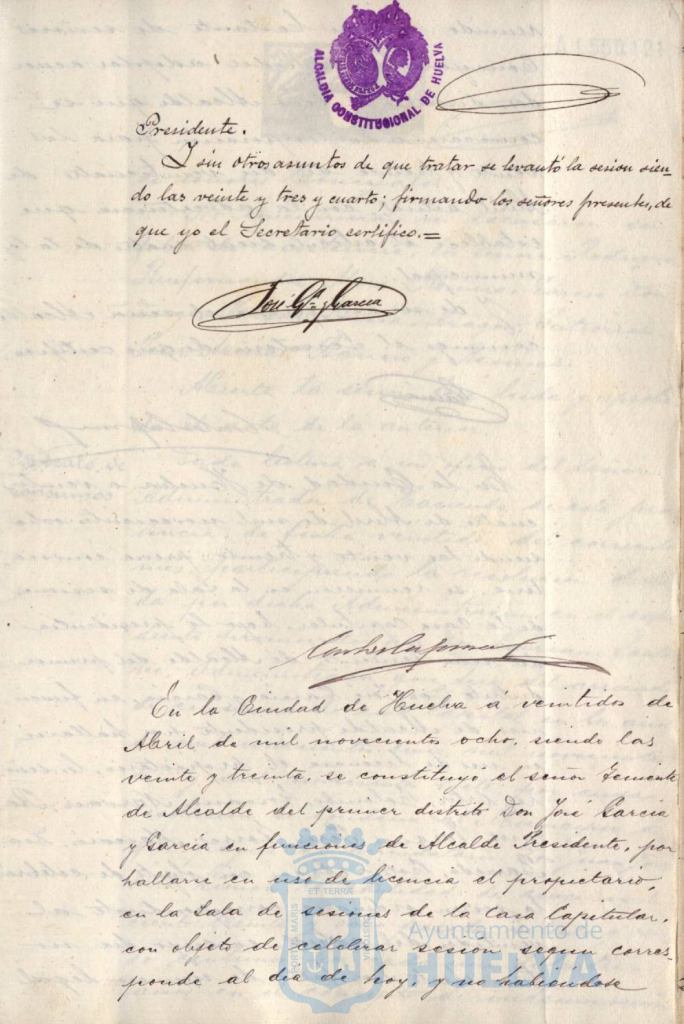 ALCALDIA CONSTITUCIONAL DE HUELVA
Presidente.
I sin otros asuntos de que tratar se levantó la sesion sien-
do las veinte y tres y cuarto; firmando los señores presentes, de
que yo el Secretario certifico.=
José Gª y García
En la Ciudad de Huelva á veintidos de
Abril de mil novecientos ocho, siendo las
veinte y treinta, se constituyó el señor Teniente
de Alcalde del primer distrito Don José García
y García en funciones de Alcalde Presidente, por
hallarse en uso de licencia el propietario,
en la Sala de sesiones de la Casa Capitular,
con objeto de celebrar sesión segun corres-
ponde al dia de hoy, y no habiendose
PORTUS MARIS ET TERRAE CUSTODIA
Ayuntamiento de
HUELVA